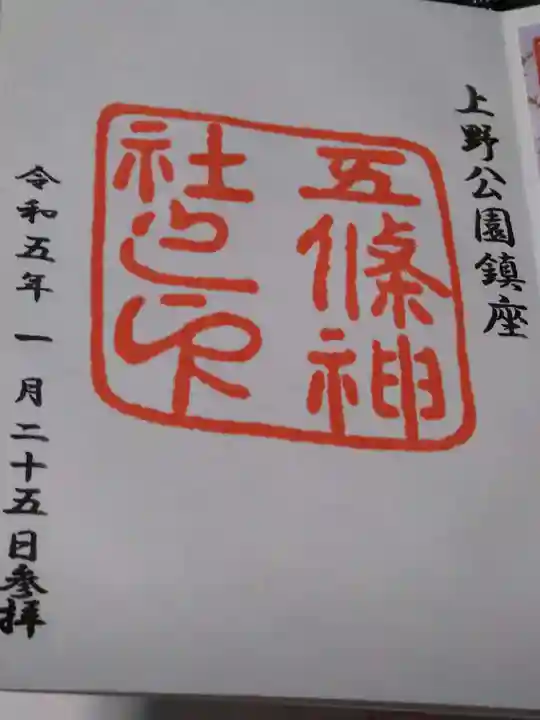 上野公園鎮座
五條神
社之印
令和五年一月二十五日参拝